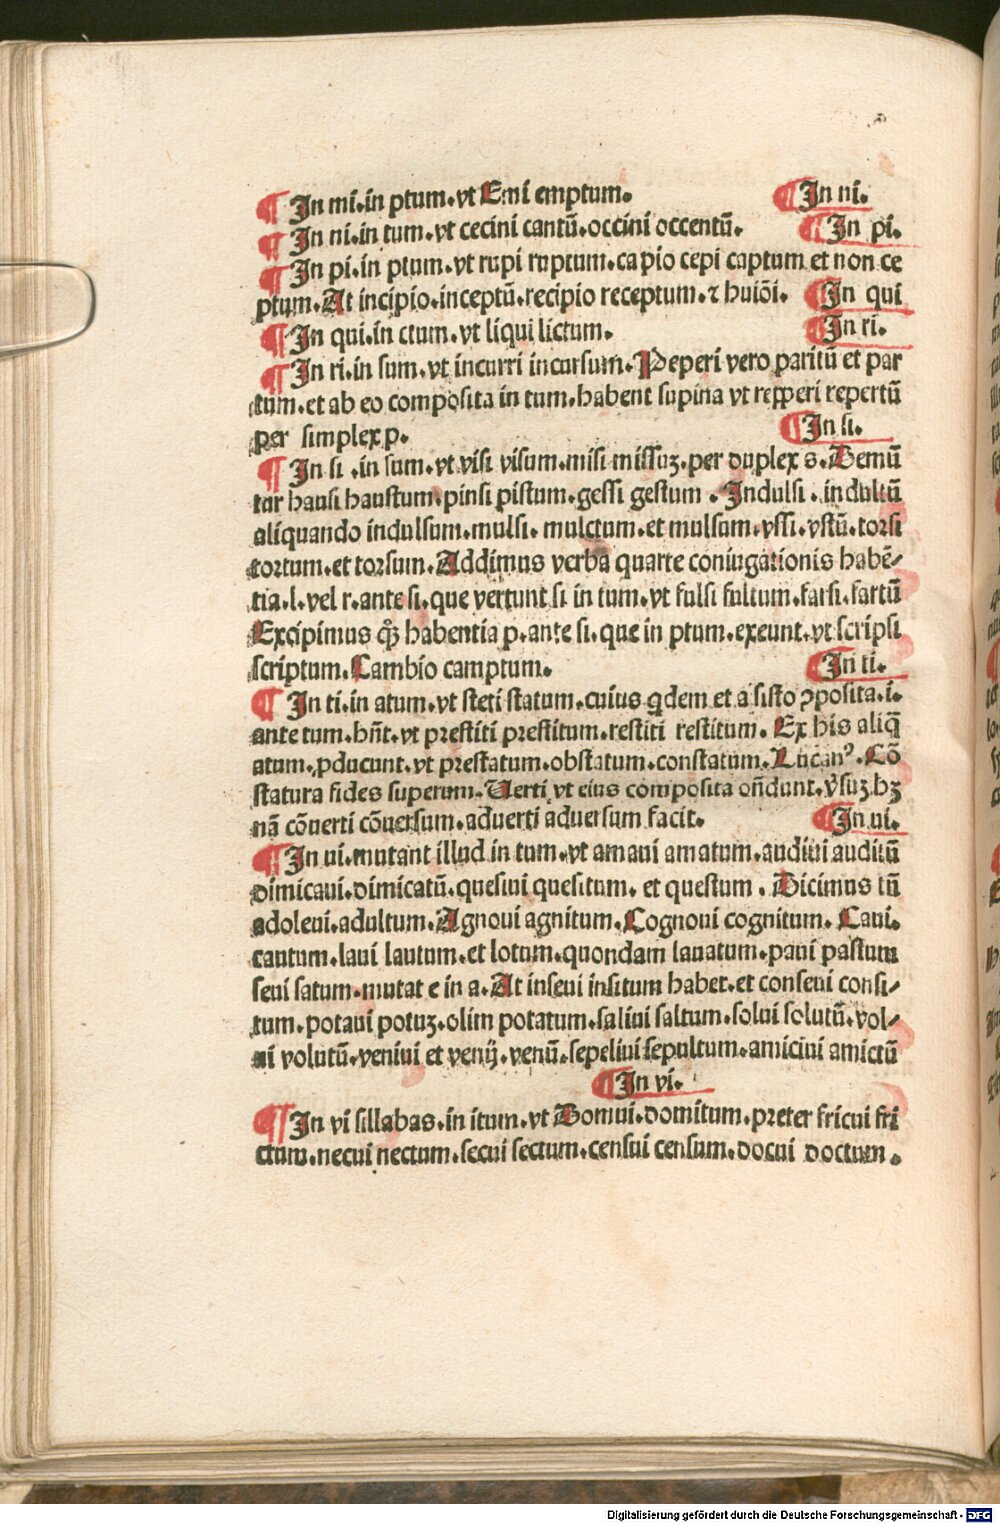 ¶ In mi.in ptum.vt Emi emptum. ¶ In ni.
¶ In ni.in tum.vt cecini cantū.occini occentū. ¶ In pi.
¶ In pi.in ptum.vt rupi ruptum.capio cepi captum et non ce
ptum.At incipio.inceptū.recipio receptum.⁊ huiōi. ¶ In qui
¶ In qui.in ctum.vt liqui lictum. ¶ In ri.
¶ In ri.in sum.vt incurri incursum.Peperi vero paritū et par
tum.et ab eo composita in tum.habent supina vt reꝑperi repertū
per simplex p. ¶ In si.
¶ In si .in sum.vt visi visum.misi missuꝫ.per duplex s.Demū
tur hausi haustum.pinsi pistum.gessi gestum . Indulsi . indultū
aliquando indulsum.mulsi. mulctum.et mulsum.vssi.vstū.torsi
tortum.et torsum.Addimus verba quarte coniugationis habē/
tia.l.vel r.ante si.que vertunt si in tum.vt fulsi fultum.farsi.fartū
Excipimus qꝫ habentia p.ante si.que in ptum.exeunt.vt scripsi
scriptum.Cambio camptum. ¶ In ti.
¶ In ti.in atum.vt steti statum.cuius qdem et a sisto ꝯposita.i.
ante tum.hn̄t.vt prestiti prestitum.restiti restitum. Ex his aliq̄
atum.ꝓducunt.vt prestatum.obstatum.constatum.Lucanꝰ.Cō
statura fides superum.Uerti vt eius composita on̄dunt.v̓suꝫ.hꝫ
nā cōuerti cōuersum.aduerti aduersum facit. ¶ In ui.
¶ In ui.mutant illud in tum.vt amaui amatum.audiui auditū
dimicaui.dimicatū.quesiui quesitum. et questum . Dicimus tn̄
adoleui.adultum.Agnoui agnitum.Cognoui cognitum. Caui.
cautum.laui lautum.et lotum.quondam lauatum.paui pastum
seui satum.mutat e in a.At inseui insitum habet.et conseui consi/
tum.potaui potuꝫ.olim potatum.saliui saltum.solui solutū.vol/
ui volutū.veniui et venij.venū.sepeliui sepultum.amiciui amictū
¶ In vi.
¶ In vi sillabas.in itum.vt Domui.domitum.preter fricui fri
ctum.necui nectum.secui sectum.censui censum.docui doctum .
Digitalisierung gefördert durch die Deutsche Forschungsgemeinschaft - DFG